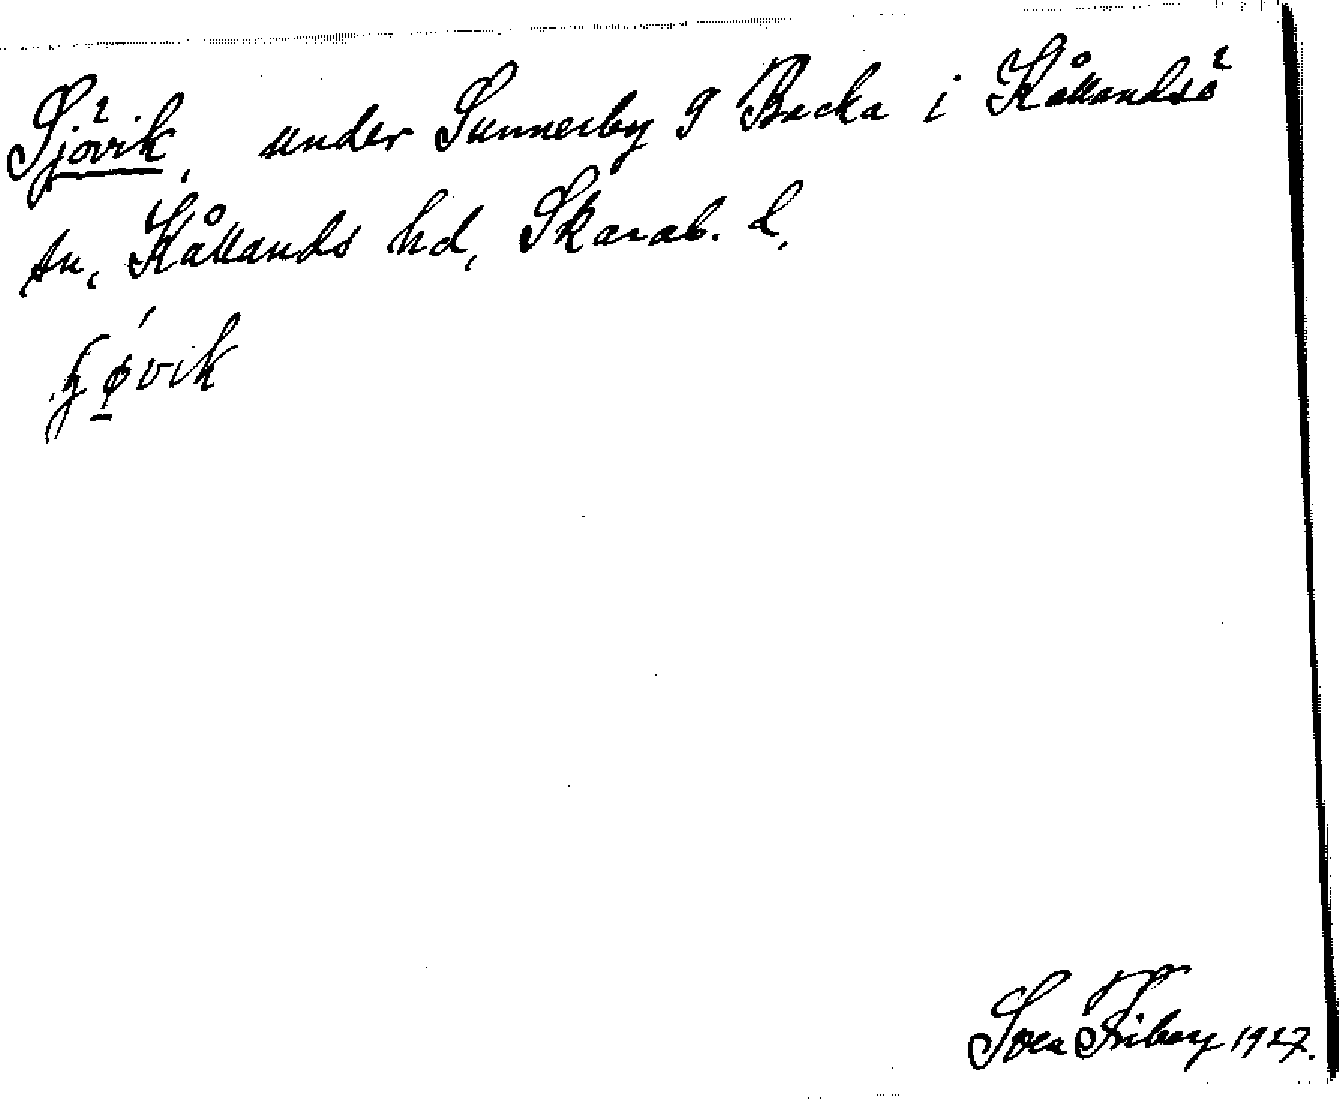 Sjövik, under Sunnerby o Backa i Kållandsö
sn, Kållands hd, Skarab. l.
Sven Friberg 1927.